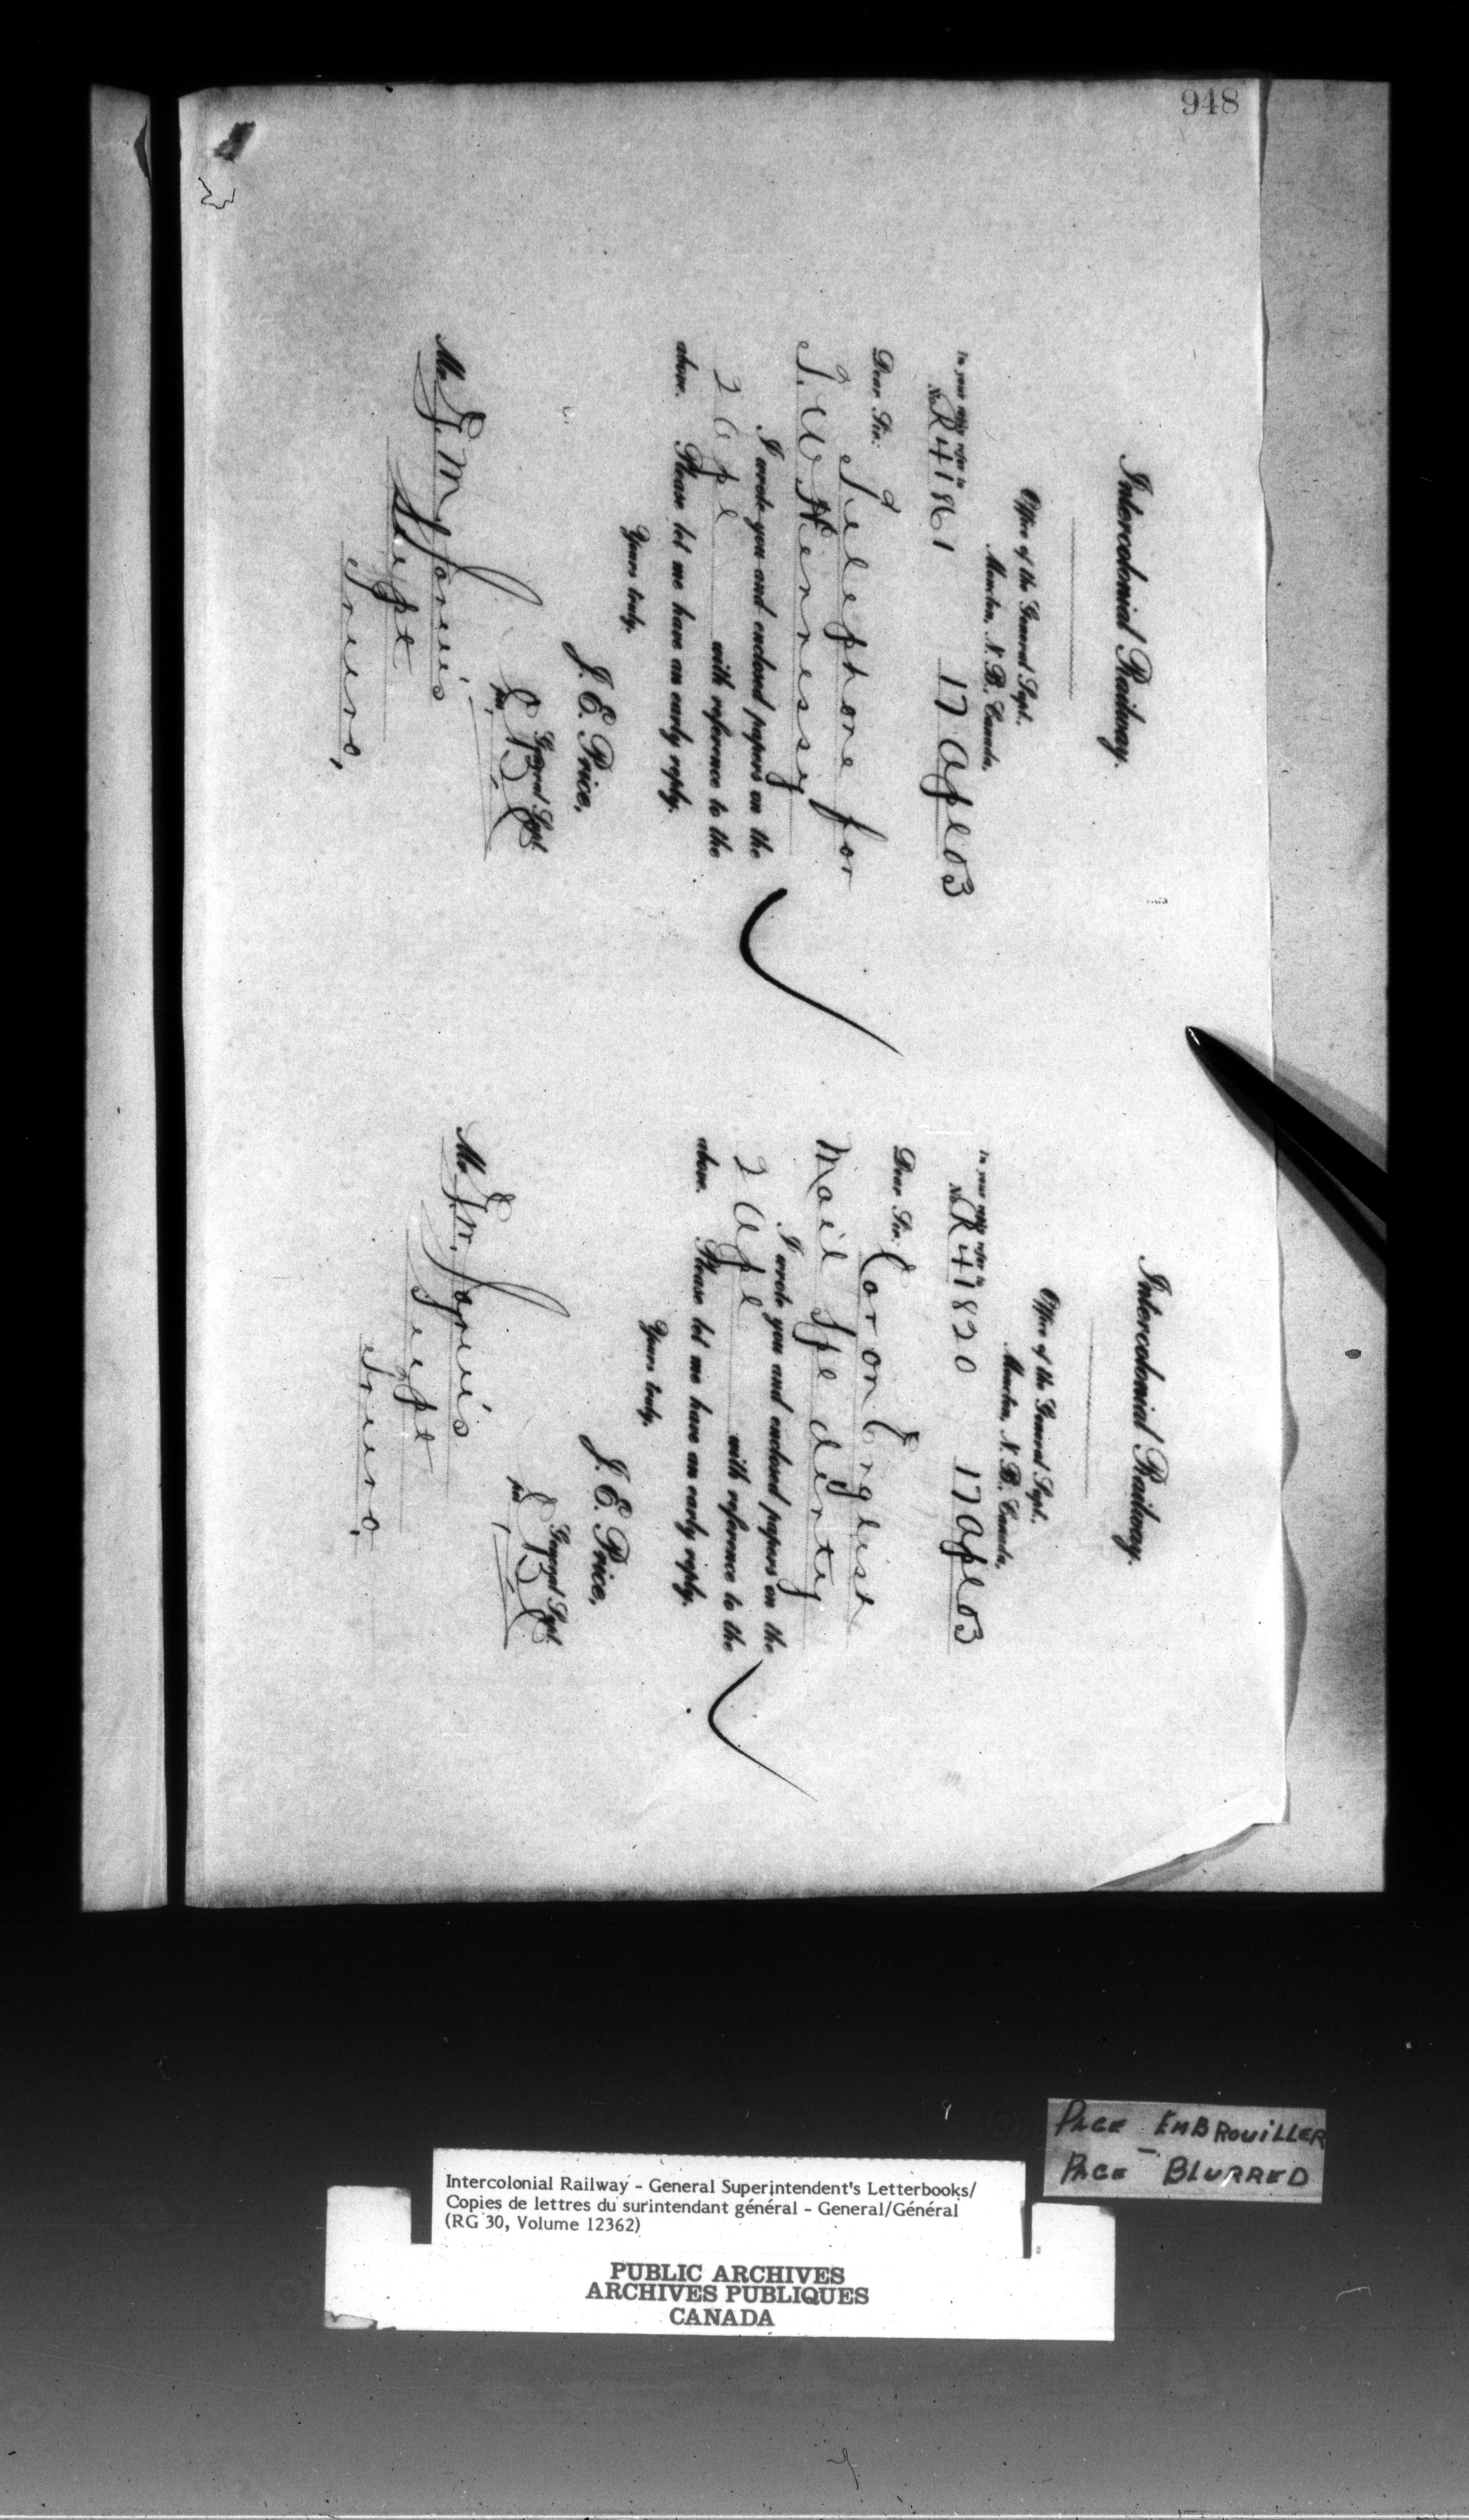 948
Intercolonial Railway.
Office of the General Supt.
Moncton, N. B., Canada,
In your reply refer to
No. R41861 17 Apl 03
Dear Sir:
Telephone for
T. W. Hennessy
I wrote you and enclosed papers on the
2 Apl with reference to the
above. Please let me have an early reply.
Yours truly,
J. E. Price,
General Supt.
per
Mr. G. M. Jarvis,
Supt
Truro,
Intercolonial Railway.
Office of the General Supt.
Moncton, N. B., Canada,
In your reply refer to
No. R41820 17 Apl 03
Dear Sir:
Car on English
Mail Spl
I wrote you and enclosed papers on the
2 Apl with reference to the
above. Please let me have an early reply.
Yours truly,
J. E. Price,
General Supt.
per
Mr. G. M. Jarvis
Supt
Truro,
PAGE EMBROUILLER
PAGE BLURRED
Intercolonial Railway - General Superintendent's Letterbooks/
Copies de lettres du surintendant général - General/Général
(RG 30, Volume 12362)
PUBLIC ARCHIVES
ARCHIVES PUBLIQUES
CANADA